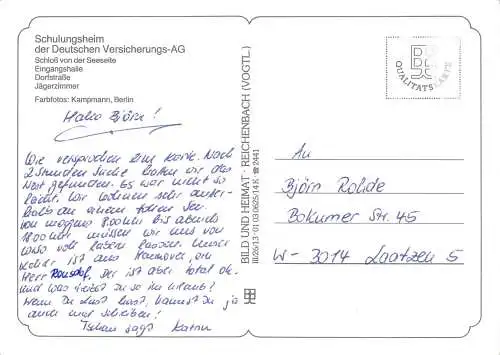 Schulungsheim
der Deutschen Versicherungs-AG
Schloß von der Seeseite
Eingangshalle
Dorfstraße
Jägerzimmer
Farbfotos: Kampmann, Berlin
Hallo Björn!
Wie versprochen eine Karte. Nach
2 Stunden Suche haben wir das
Nest gefunden. Es war nicht so
leicht. Wir wohnen sehr außer-
halb an einem tollen See.
Von morgens 8.00 Uhr bis abends
18.00 Uhr müssen wir uns von
voll labern lassen. Unser
Lehrer ist aus Hannover, ein
Herr Der ist aber total ok.
Und was treibst du so im Urlaub?
Wenn du Lust hast, kannst du ja
auch mal schreiben!
Tschau sagt Katrin
BILD UND HEIMAT · REICHENBACH (VOGTL.)
III/26/13 01 03 0625/14 K ☎ 2441
BB
QUALITÄTSKARTE
An
Björn Rohde
Bokumer Str. 45
W - 3014 Laatzen 5